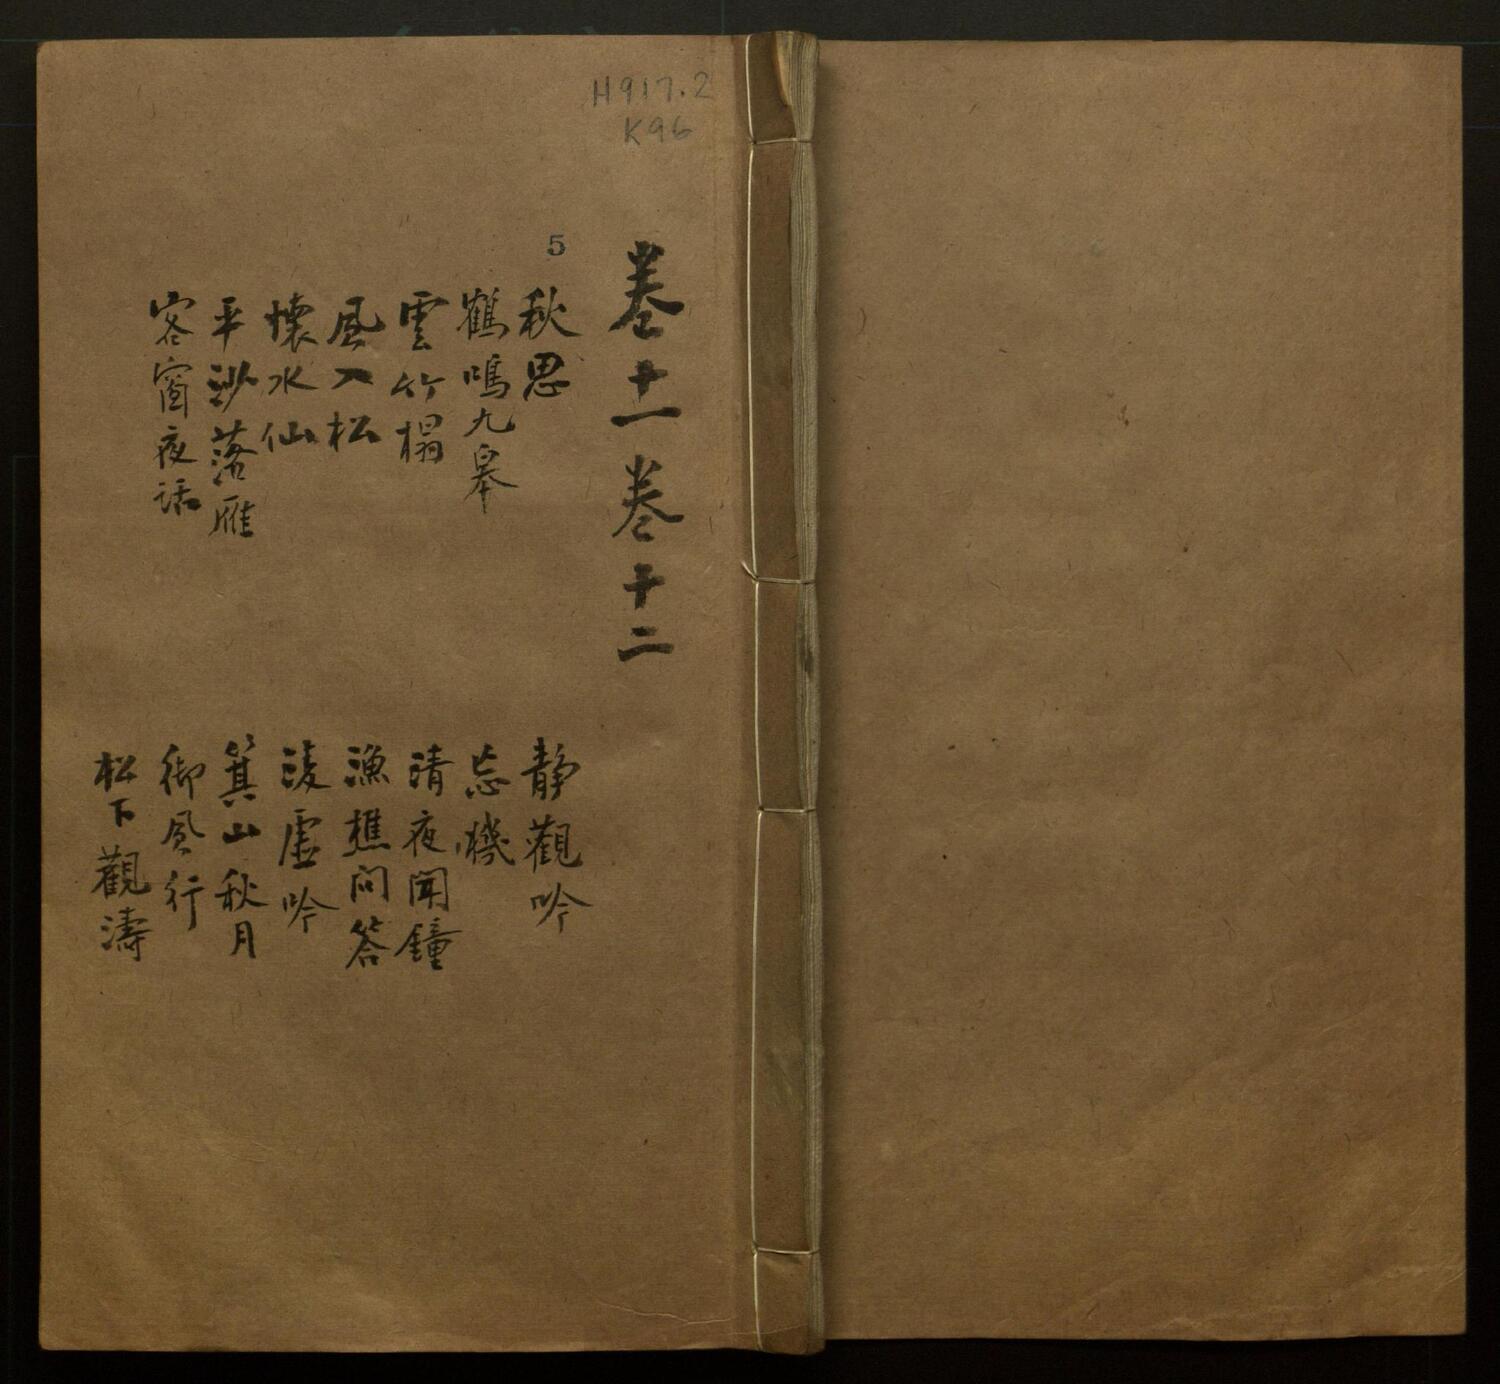 H917.2
K96
5
卷十一 卷十二
秋思
鶴鳴九皋
雲竹榻
風入松
懷水仙
平沙落雁
客窗夜話
静觀吟
忘機
清夜聞鐘
漁樵问答
淩虛吟
箕山秋月
御風行
松下觀濤